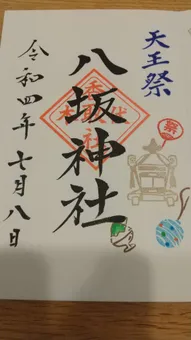 天王祭
八坂神社
令和四年七月八日
祭